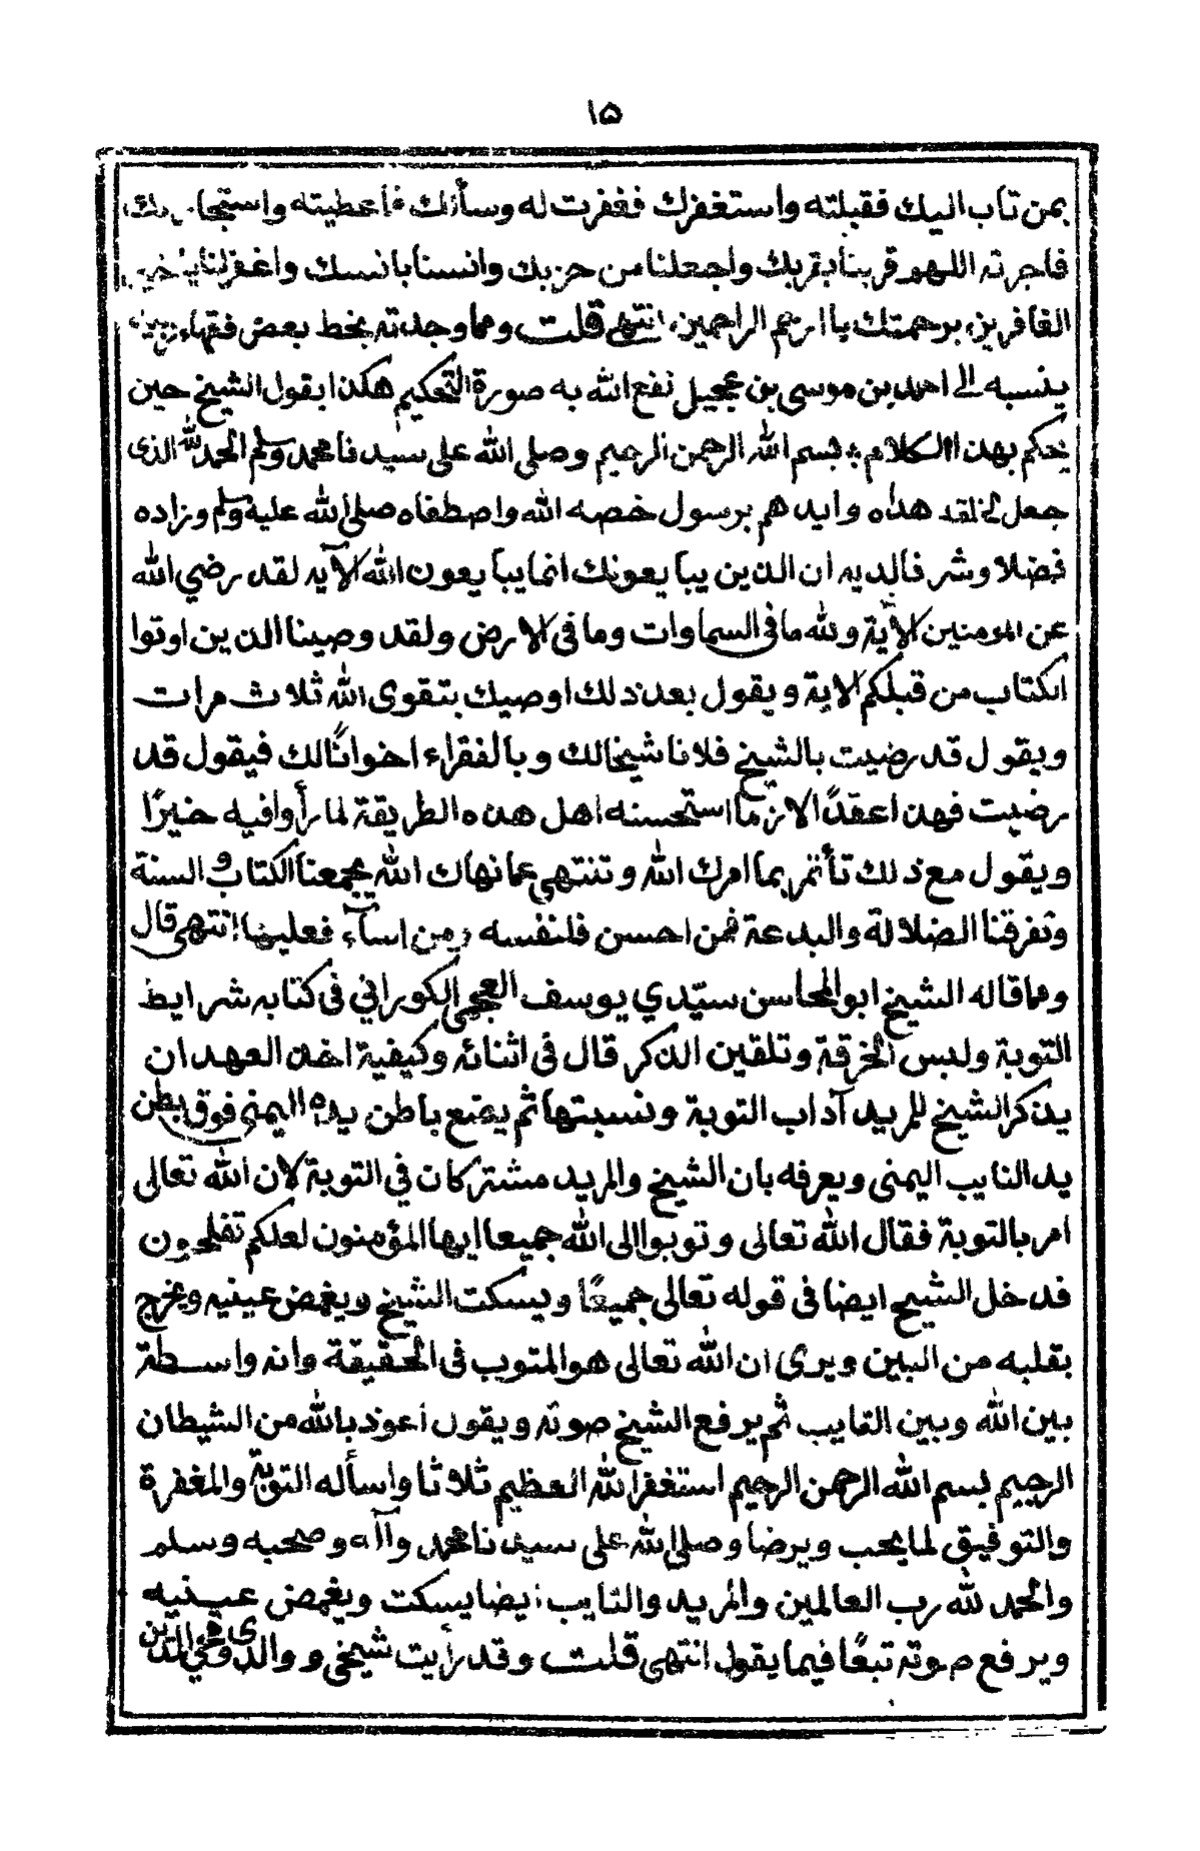 ١٥
بمن تاب اليك فقبلته واستغفرك فغفرت له وسألك فأعطيته واستجار بك
فاجرته اللهم قربنا بقربك واجعلنا من حزبك وانسنا بانسك واغفر لنا يا خير
الغافرين برحمتك يا ارحم الراحمين انتهى قلت ومما وجدته بخط بعض فقهاء زبيد
ينسبه الى احمد بن موسى بن عجيل نفع الله به صورة التحكيم هكذا يقول الشيخ حين
يحكم بهذا الكلام بسم الله الرحمن الرحيم وصلى الله على سيدنا محمد وسلم الحمد لله الذى
جعل هداه وايدهم برسول خصه الله واصطفاه صلى الله عليه وسلم وزاده
فضلا وشرفا لديه ان الذين يبايعونك انما يبايعون الله الآيه لقد رضي الله
عن المومنين الآية ولله ما فى السماوات وما فى الارض ولقد وصينا الذين اوتوا
الكتاب من قبلكم الاية ويقول بعد ذلك اوصيك بتقوى الله ثلاث مرات
ويقول قد رضيت بالشيخ فلانا شيخا لك وبالفقراء اخوانًا لك فيقول قد
رضيت فهذا عقدًا لازما استحسنه اهل هذه الطريقة لما رأوا فيه خيرًا
ويقول مع ذلك تأتمر بما امرك الله وتنتهي عما نهاك الله يجمعنا الكتاب والسنة
وتفرقنا الضلالة والبدعة فمن احسن فلنفسه ومن اسآء فعليها انتهى قال
ومما قاله الشيخ ابو المحاسن سيّدي يوسف العجمي الكوراني فى كتابه شرايط
التوبة ولبس الخرقة وتلقين الذكر قال فى اثنائه وكيفية اخذ العهد ان
يذكر الشيخ للمريد آداب التوبة ونسبتها ثم يضع باطن يده اليمنى فوق بطن
يد النايب اليمنى ويعرفه بان الشيخ والمريد مشتركان في التوبة لان الله تعالى
امر بالتوبة فقال الله تعالى وتوبوا الى الله جميعا ايها المؤمنون لعلكم تفلحون
فدخل الشيخ ايضا فى قوله تعالى جميعًا ويسكت الشيخ ويغمض عينيه ويخرج
بقلبه من البين ويرى ان الله تعالى هو المتوب فى الحقيقة وانه واسطة
بين الله وبين التايب ثم يرفع الشيخ صوته ويقول أعوذ بالله من الشيطان
الرجيم بسم الله الرحمن الرحيم استغفر الله العظيم ثلاثا واسأله التوبة والمغفرة
والتوفيق لما يحب ويرضا وصلى الله على سيدنا محمد وآله وصحبه وسلم
والحمد لله رب العالمين والمريد والتايب ايضا يسكت ويغمض عينيه
ويرفع صوته تبعًا فيما يقول انتهى قلت وقد رأيت شيخي ووالدى وفخر الدين